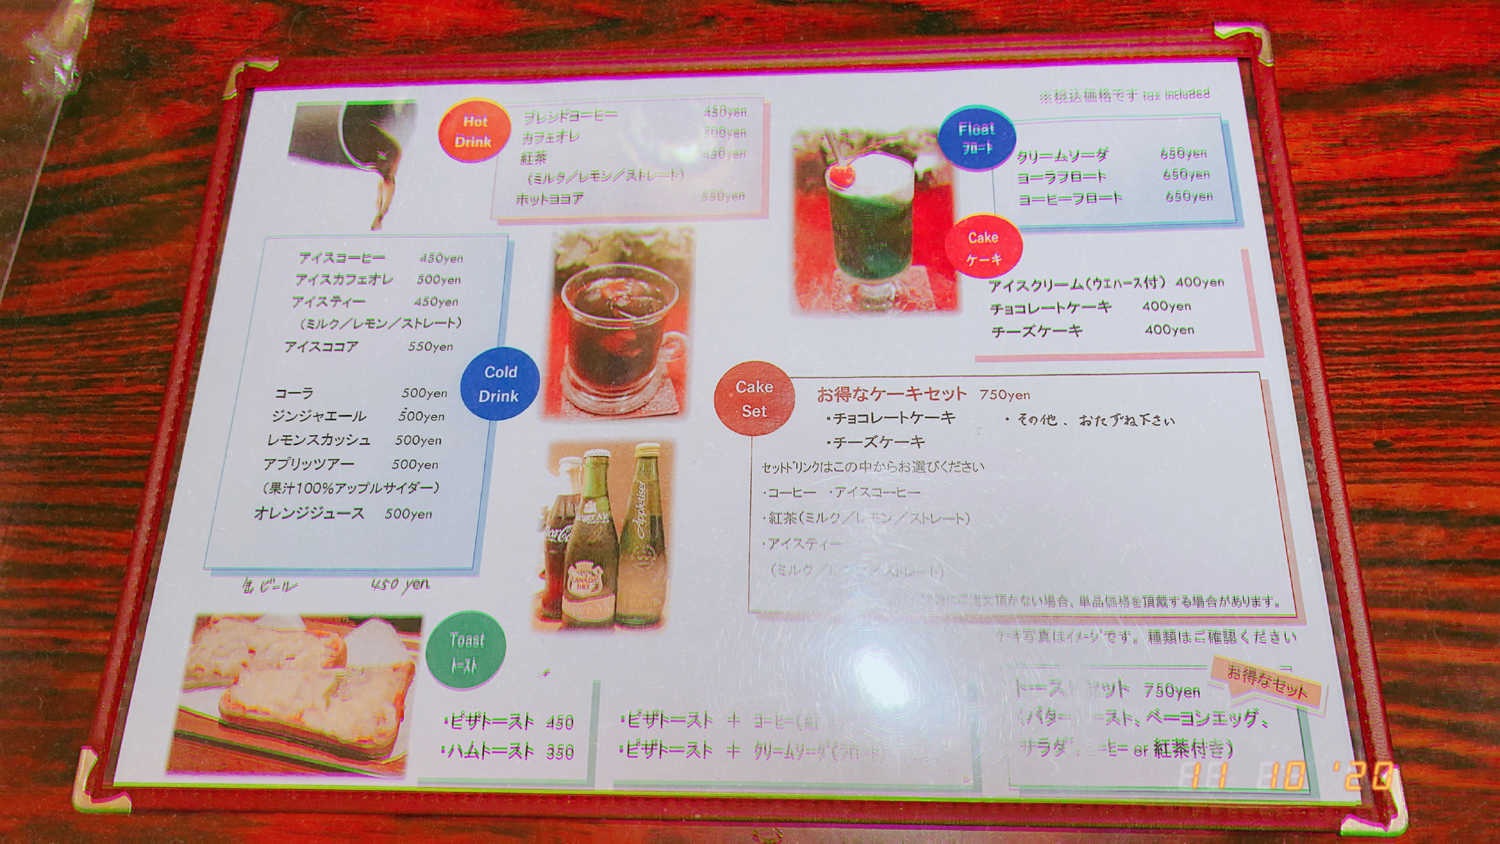 ※税込価格です tax included
Hot
Drink
ブレンドコーヒー 450yen
カフェオレ 500yen
紅茶 450yen
（ミルク／レモン／ストレート）
ホットココア 550yen
Float
フロート
クリームソーダ 650yen
コーラフロート 650yen
コーヒーフロート 650yen
Cake
ケーキ
アイスクリーム（ウエハース付） 400yen
チョコレートケーキ 400yen
チーズケーキ 400yen
アイスコーヒー 450yen
アイスカフェオレ 500yen
アイスティー 450yen
（ミルク／レモン／ストレート）
アイスココア 550yen
Cold
Drink
コーラ 500yen
ジンジャエール 500yen
レモンスカッシュ 500yen
アプリッツアー 500yen
（果汁100%アップルサイダー）
オレンジジュース 500yen
缶ビール 450 yen
Cake
Set
お得なケーキセット 750yen
・チョコレートケーキ ・その他、おたずね下さい
・チーズケーキ
セットドリンクはこの中からお選びください
・コーヒー ・アイスコーヒー
・紅茶（ミルク／レモン／ストレート）
・アイスティー
（ミルク／レモン／ストレート）
ご注文頂かない場合、単品価格を頂戴する場合があります。
ケーキ写真はイメージです。種類はご確認ください
CANADA
DRY
Appletiser
Toast
トースト
・ピザトースト 450
・ハムトースト 350
・ピザトースト ＋ コーヒー（紅
・ピザトースト ＋ クリームソーダ（フロート）
お得なセット
トーストセット 750yen
（バタートースト、ベーコンエッグ、
サラダ、コーヒー or 紅茶付き）
11 10 '20